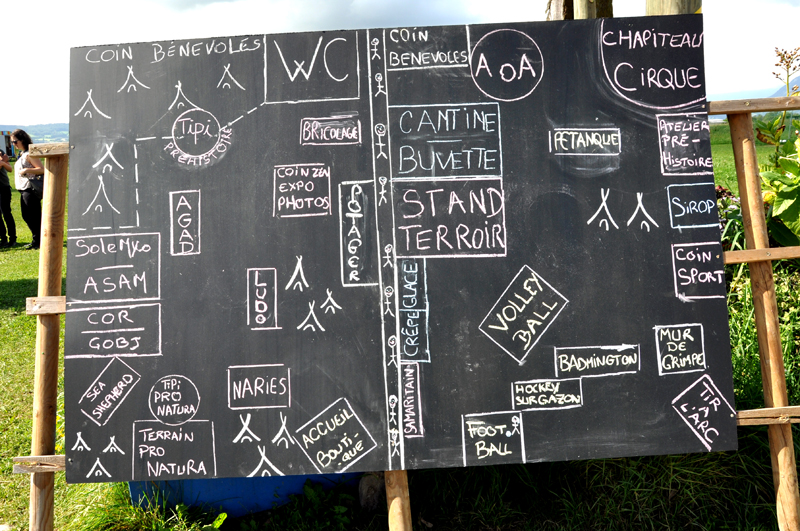 COIN BÉNEVOLES
WC
TIPI
PRÉHISTOIRE
BRICOLAGE
COIN ZEN
EXPO
PHOTOS
AGAD
POTAGER
SOLEMYO
ASAM
LUDO
COR
GOBJ
SEA
SHEPHERD
TIPI
PRO
NATURA
NARIES
TERRAIN
PRO
NATURA
ACCUEIL
BOUTI
QUE
COIN
BENEVOLES
AOA
CHAPITEAU
CIRQUE
CANTINE
BUVETTE
PETANQUE
ATELIER
PRÉ-
HISTOIRE
STAND
TERROIR
SIROP
COIN-
SPORT
CRÊPE GLACE
VOLLEY
BALL
BADMINGTON
MUR
DE
GRIMPE
SAMARITAIN
HOCKEY
SUR GAZON
FOOT
BALL
TIR
À
L'ARC